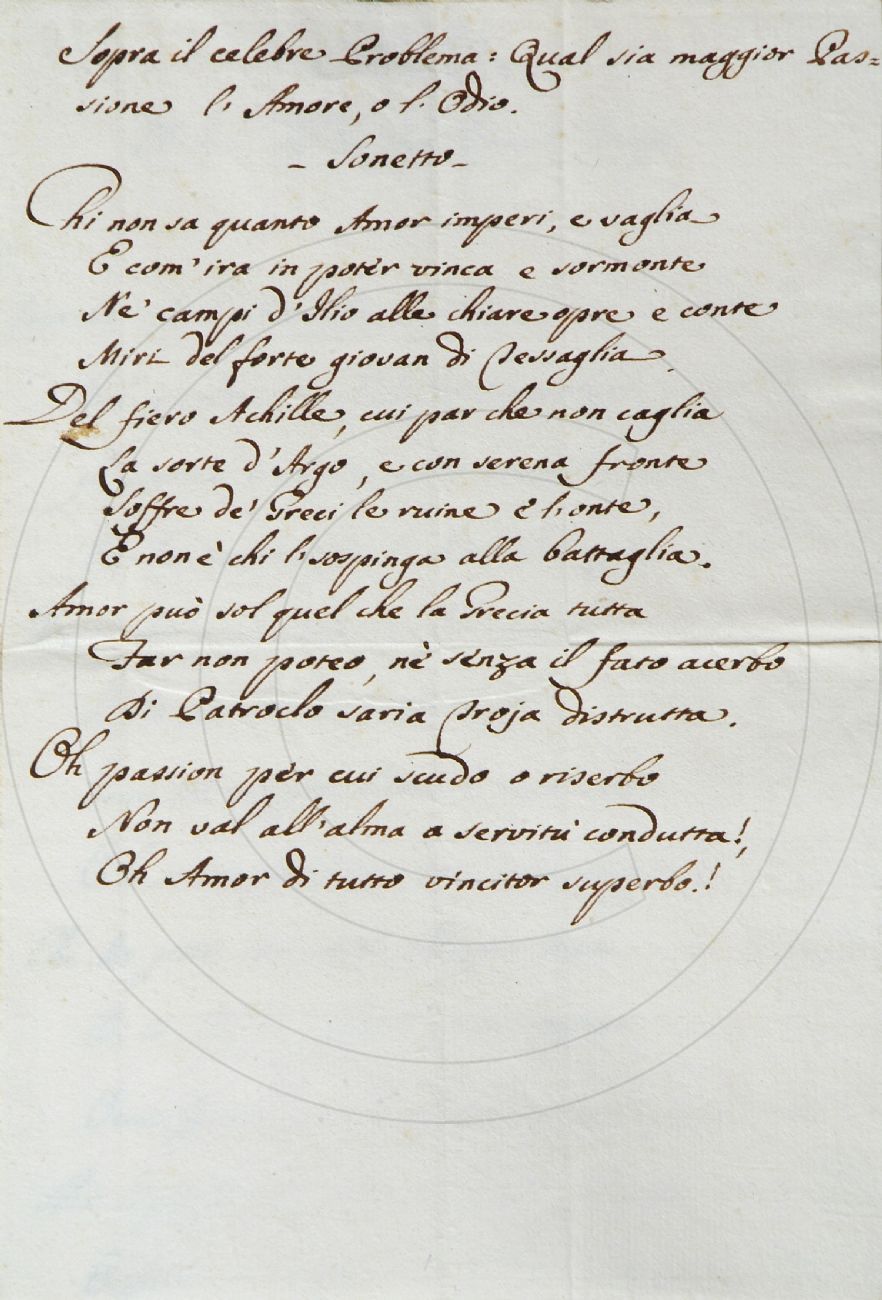 Sopra il celebre Problema: Qual sia maggior Pas=
sione l'Amore, o l'Odio.
- Sonetto -
Chi non sa quanto Amor imperi, e vaglia
E com' ira in poter vinca e sormonte
Ne' campi d'Ilio alle chiare opre e conte
Miri del forte giovan di Tessaglia,
Del fiero Achille, cui par che non caglia
La sorte d'Argo, e con serena fronte
Soffre de' Greci le ruine e l'onte,
E non è chi l'sospinga alla battaglia.
Amor può sol quel che la Grecia tutta
Far non poteo, nè senza il fato acerbo
Di Patroclo saria Troja distrutta.
Oh passion per cui scudo o riserbo
Non val all'alma a servitù condutta!,
Oh Amor di tutto vincitor superbo.!